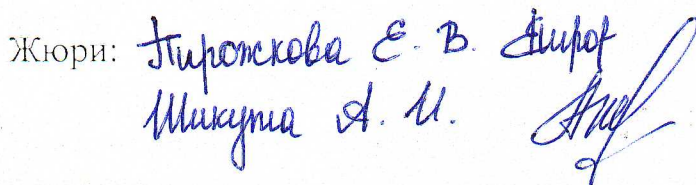 Жюри: Пирожкова Е. В. Пирог
Шикута А. И.